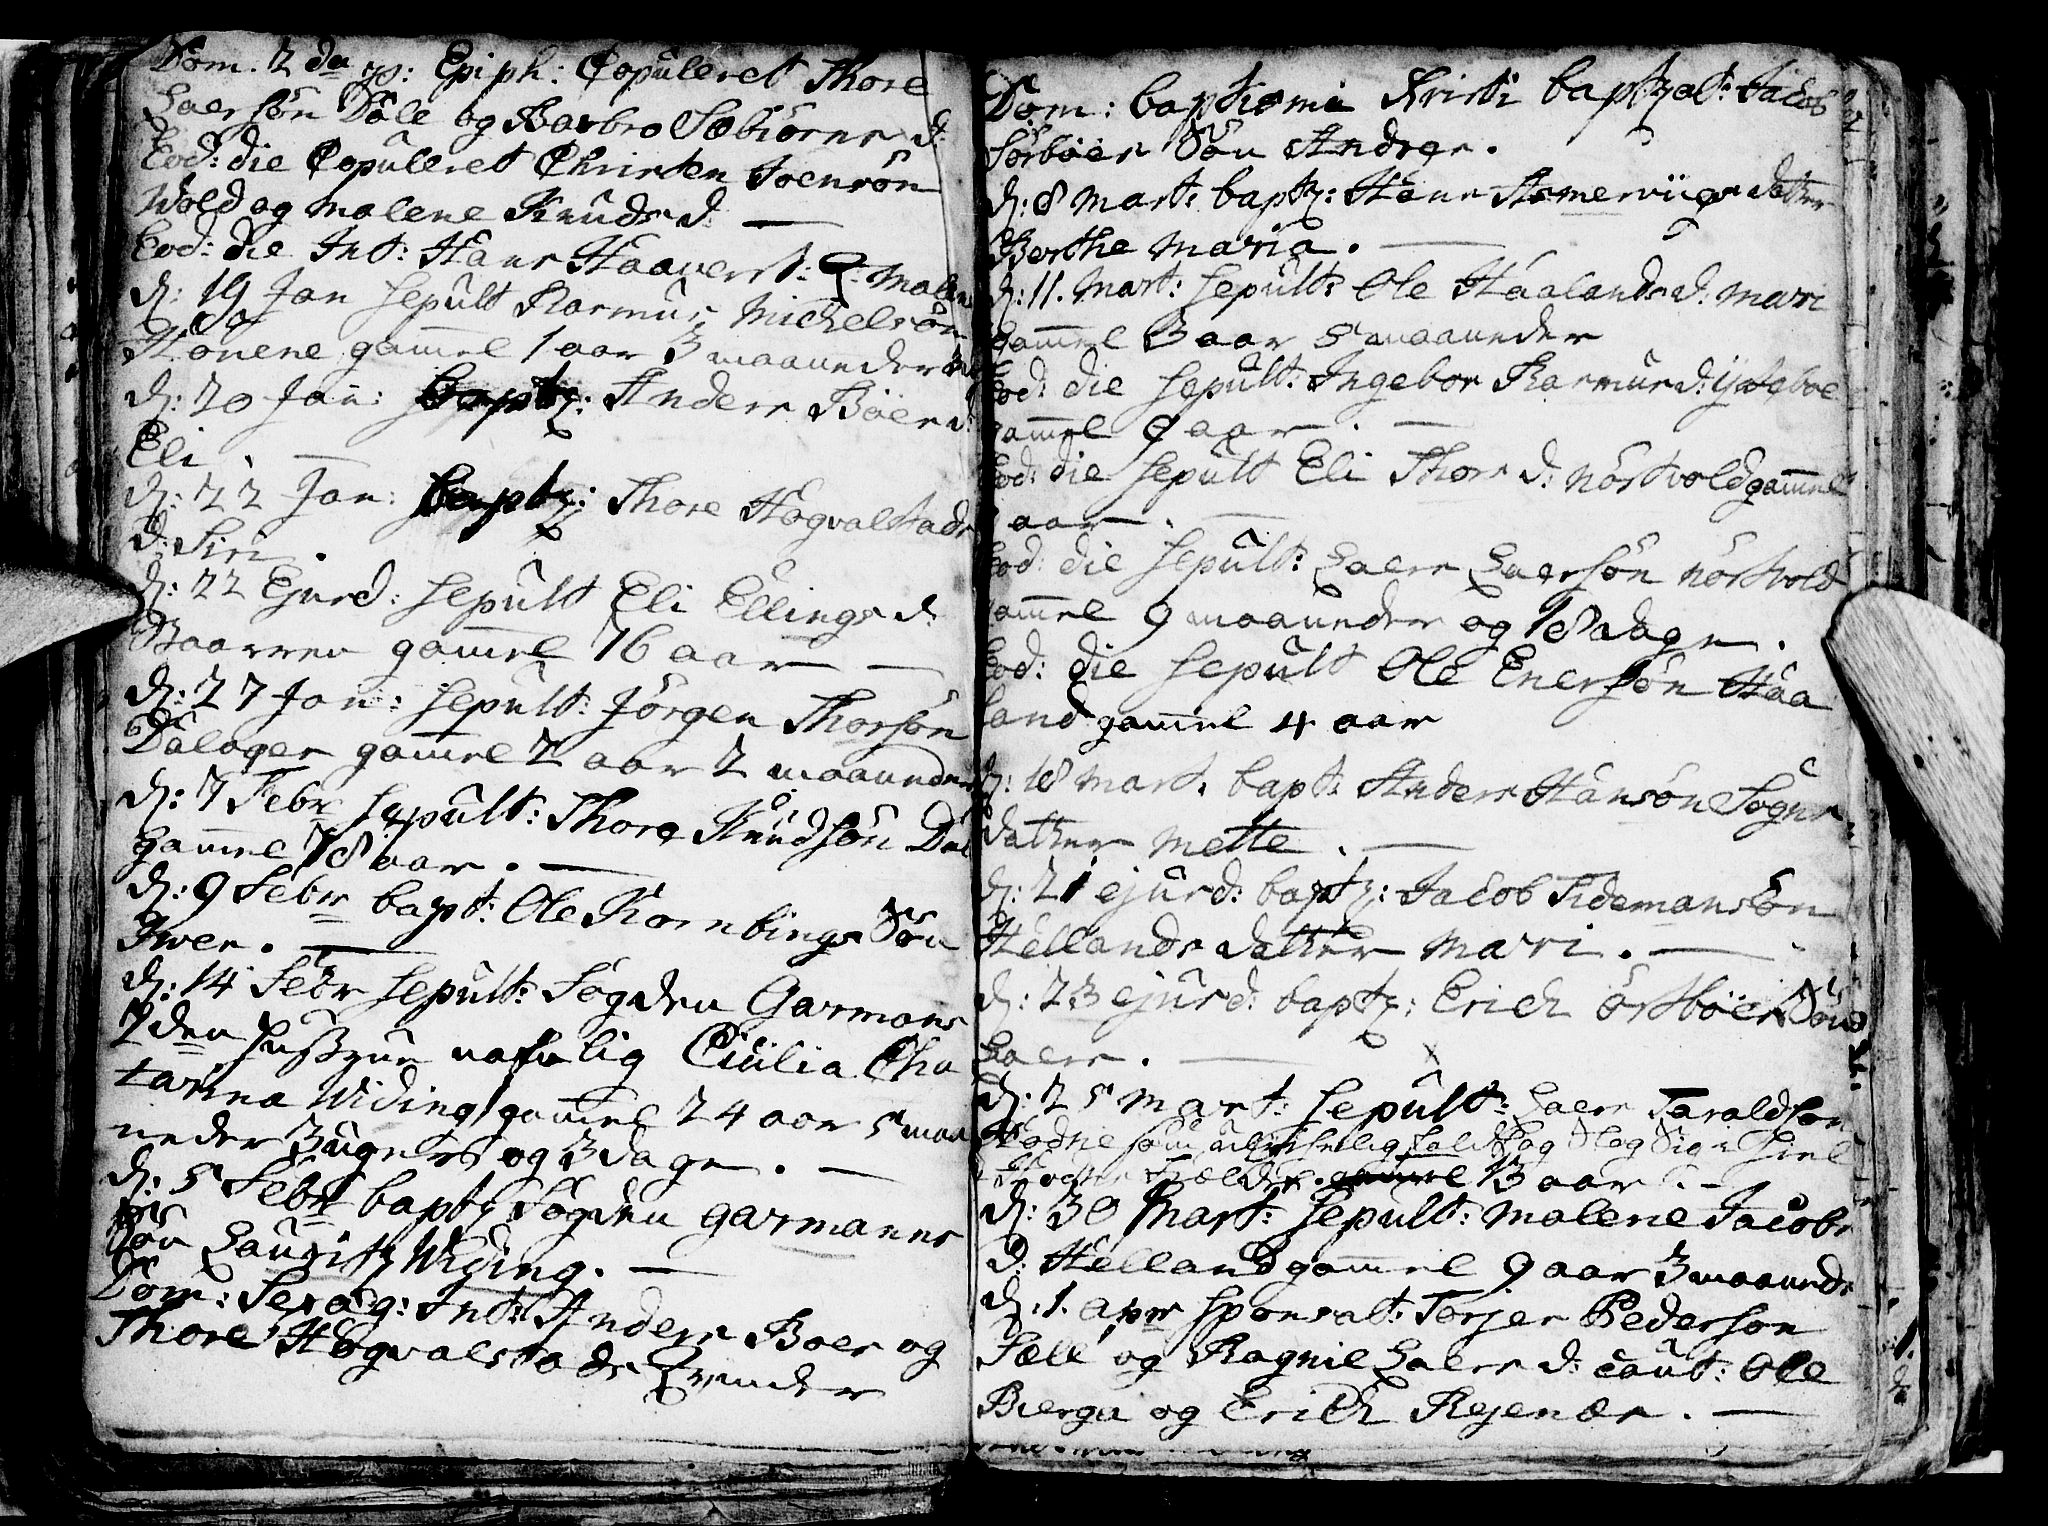 Dom. 2da p: Epiph: Copuleret Thore
Laersön Dale og Barbro Sebiörns d:
Eod: die Copuleret Christen Joensön
Wold og Malene Knuds d: —
Eod: die Int: Hans Haaverst: Q: Malene
d: 19 Jan sepult Rasmus Michelsön
Hönene gammel 1 aar 3 maaneder
d: 20 Jan: baptz: Anders Böers d:
Eli. —
d: 22 Jan: baptz: Thore Hogvalstads
d: Siri.
d: 22 Ejusd: sepult Eli Ellings d:
gammel 16 aar —
d: 27 Jan: sepult: Jörgen Thorsön
Dalager gammel 2 aar 2 maaneder
d: 7 Febr sepult: Thore Knudsön Dal
gammel 78 aar. —
d: 9 Febr bapt: Ole Kornbings Sön
Iwer. —
d: 14 Febr sepult: Sogden Garmans
2den Hustrue nafnlig Cicilia Cha
tarina Widing gammel 24 aar 5 maa
neder 3 uger og 3 dage. —
d: 5 Febr baptz Sogden Garmans
Sön Lauritz Widing. —
Dom: Sexag: Int: Anders Boer og
Thore Hogvalstads Qvinder
Dom: baptismi Kristi baptzat: Jacob
Sörböes Sön Andreas.
d: 8 Mart: baptz: Hans Asmerviigs datter
Berthe Maria. —
d: 11. Mart: sepult: Ole Haalands d: Mari
gammel 3 aar 5 maaneder
Eod: die sepult: Ingebor Rasmus d: Ysteboe
gammel 9 aar. —
Eod: die sepult Eli Thors d: Nörtvold gammel
aar. —
Eod: die sepult: Laers Laersön Nörtvold
gammel 9 maaneder og 18 dage.
Eod: die sepult Ole Enersön Haa
land gammel 4 aar
d: 18 Mart. bapt: Anders Hansön Sogns
datter Mette. —
d: 21 ejusd: baptz: Jacob Tidemansön
Hellands datter Mari. —
d: 23 ejusd: baptz: Erich Örstböes Sön
Laers. —
d: 25 Mart: sepult: Laers Taraldsön
som slog Sig i Hiel
13 aar. —
d: 30 Mart: sepult: Malene Jacobs
d: Helland gammel 9 aar 3 maaneder
d: 1. Apr sponsat: Torjer Pedersön
Sele og Ragnil Laers d: Caut: Ole
Bierga og Erich Rejenæs. —